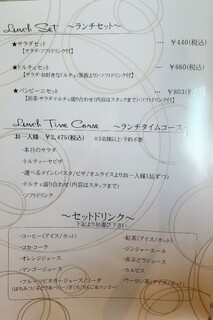 Lunch Set ～ランチセット～
★サラダセット … ￥440(税込)
【サラダ・ソフトドリンク付】
★ドルチェセット … ￥660(税込)
【サラダ・お好きなドルチェ(黒板より)・ソフトドリンク付】
★バンビーニセット … ￥803(税込)
【前菜・サラダ・ドルチェ盛り合わせ(内容はスタッフまで)・ソフトドリンク付】
Lunch Time Corse ～ランチタイムコース～
お一人様 ￥2,475(税込) ※2名様以上・予約不要
・本日のサラダ
・トルティーヤピザ
・選べるメイン(パスタ/ピザ/オムライスよりお一人様1品ずつ)
・ドルチェ盛り合わせ(内容はスタッフまで)
・ソフトドリンク
～セットドリンク～
下記よりお選び下さい
・コーヒー(アイス/ホット)
・紅茶(アイス/ホット)
・コカ・コーラ
・ジンジャーエール
・オレンジジュース
・赤ぶどうジュース
・マンゴージュース
・カルピス
・フルーツビネガージュース/ソーダ
・ウーロン茶(アイス/ホット)